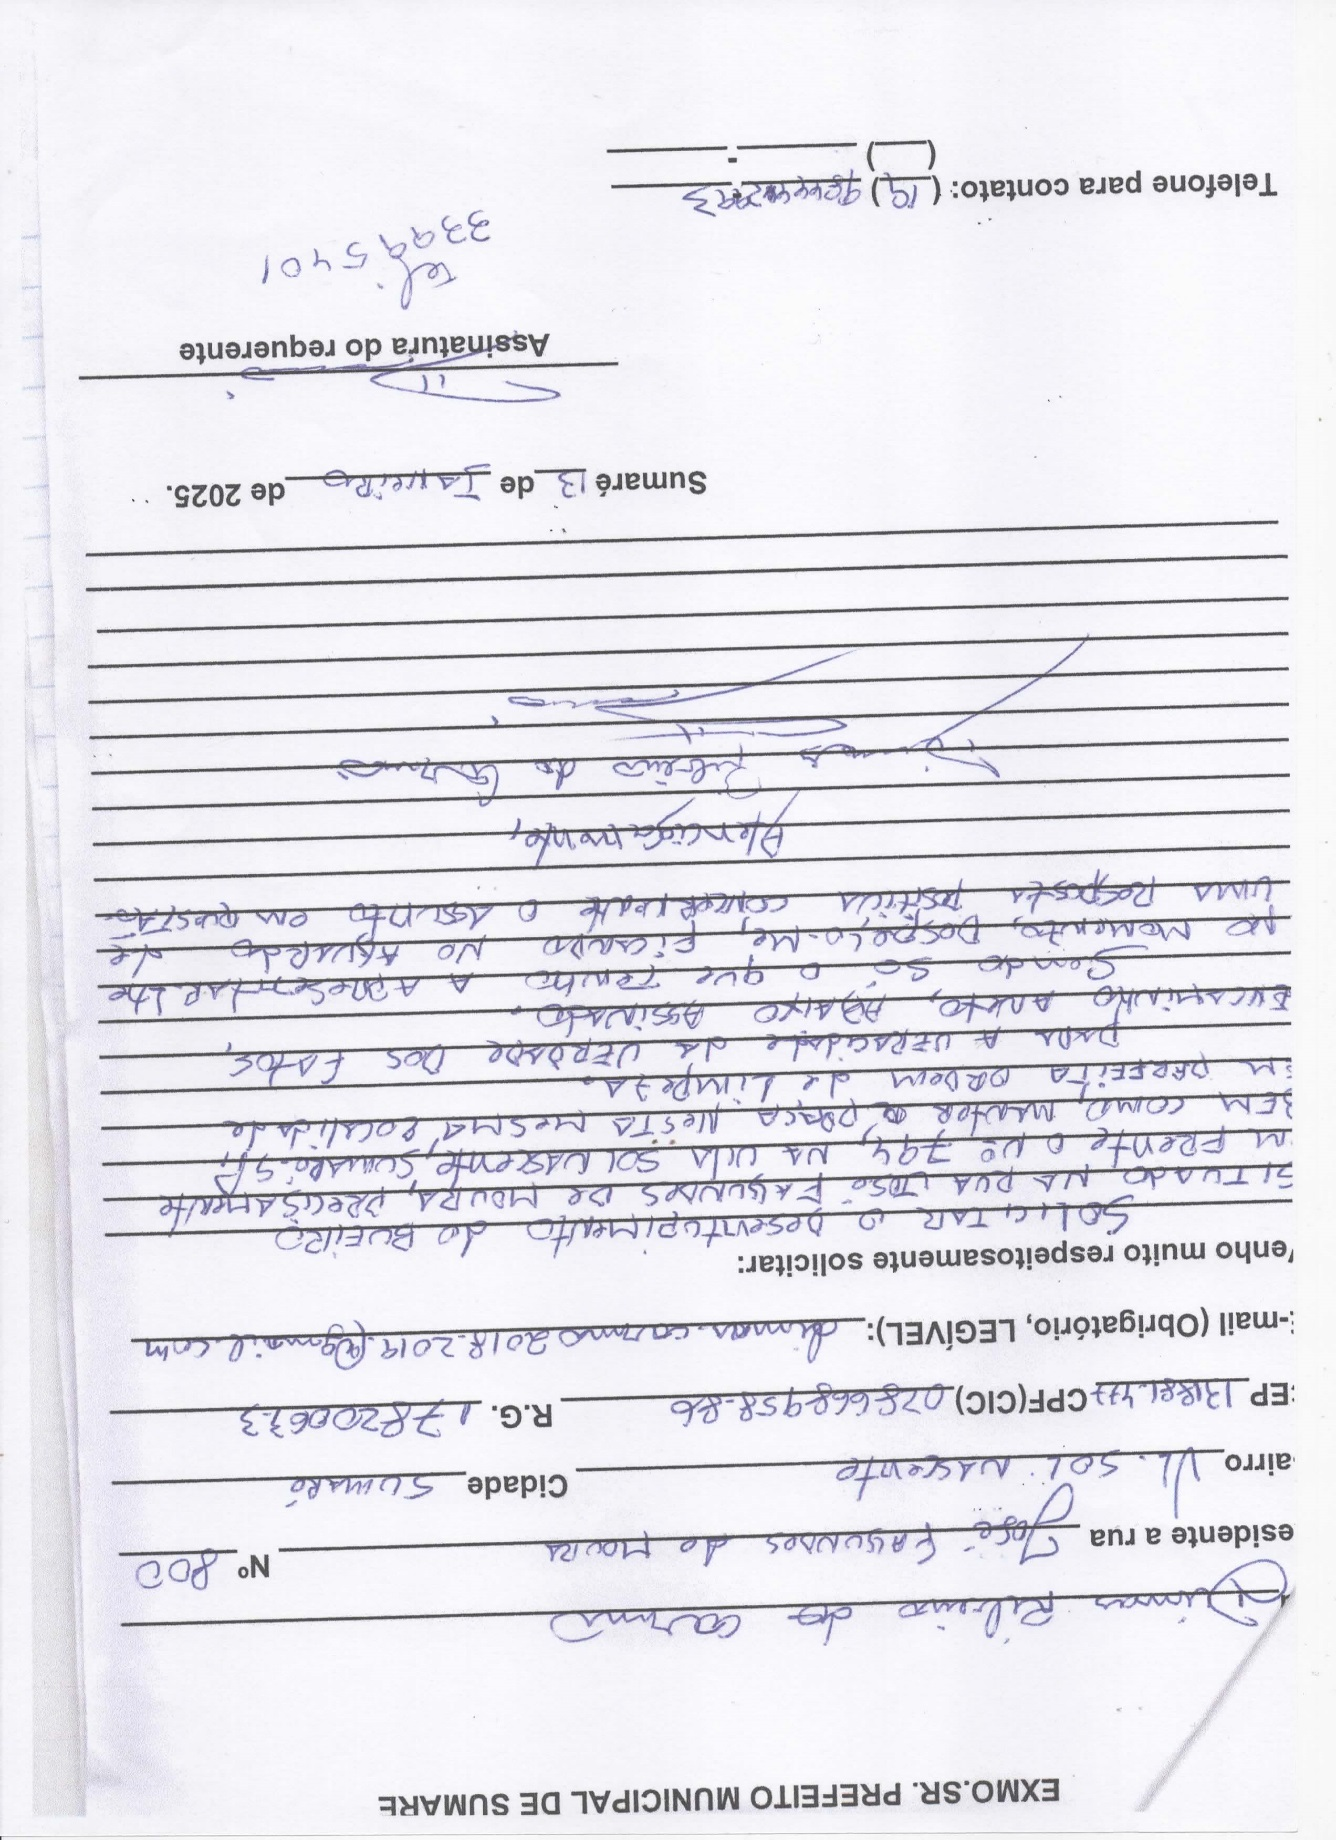 EXMO.SR. PREFEITO MUNICIPAL DE SUMARE
Dimas Ribeiro do Carmo
esidente a rua José Fagundes de Moura Nº 800
airro VL. SOL NASCENTE Cidade SUMARÉ
EP CPF(CIC) 028668958-86 R.G. 178200673
-mail (Obrigatório, LEGÍVEL): dimas.carmo2018.2019@gmail.com
Venho muito respeitosamente solicitar:
SOLICITAR O DESENTUPIMENTO do BUEIRO
SITUADO NA RUA JOSÉ FAGUNDES DE MOURA, PRECISAMENTE
EM FRENTE O Nº 794, NA VILA SOL NASCENTE, SUMARÉ-SP,
BEM COMO, MANTER A PRAÇA NESTA MESMA LOCALIDADE
EM PERFEITA ORDEM de LIMPEZA.
PARA A VERACIDADE da VERDADE DOS FATOS,
ENCAMINHO ANEXO, ABAIXO ASSINADO.
Sendo só o que TENHO A APRESENTAR-LHE
NO MOMENTO, DESPEÇO-ME, FICANDO NO AGUARDO de
UMA RESPOSTA POSITIVA CONCERNENTE O ASSUNTO em QUESTÃO.
Atenciosamente,
Dimas Ribeiro do Carmo
Sumaré 13 de JANEIRO de 2025.
Assinatura do requerente
Tel. 5401
3399
Telefone para contato: (19)
( ) -